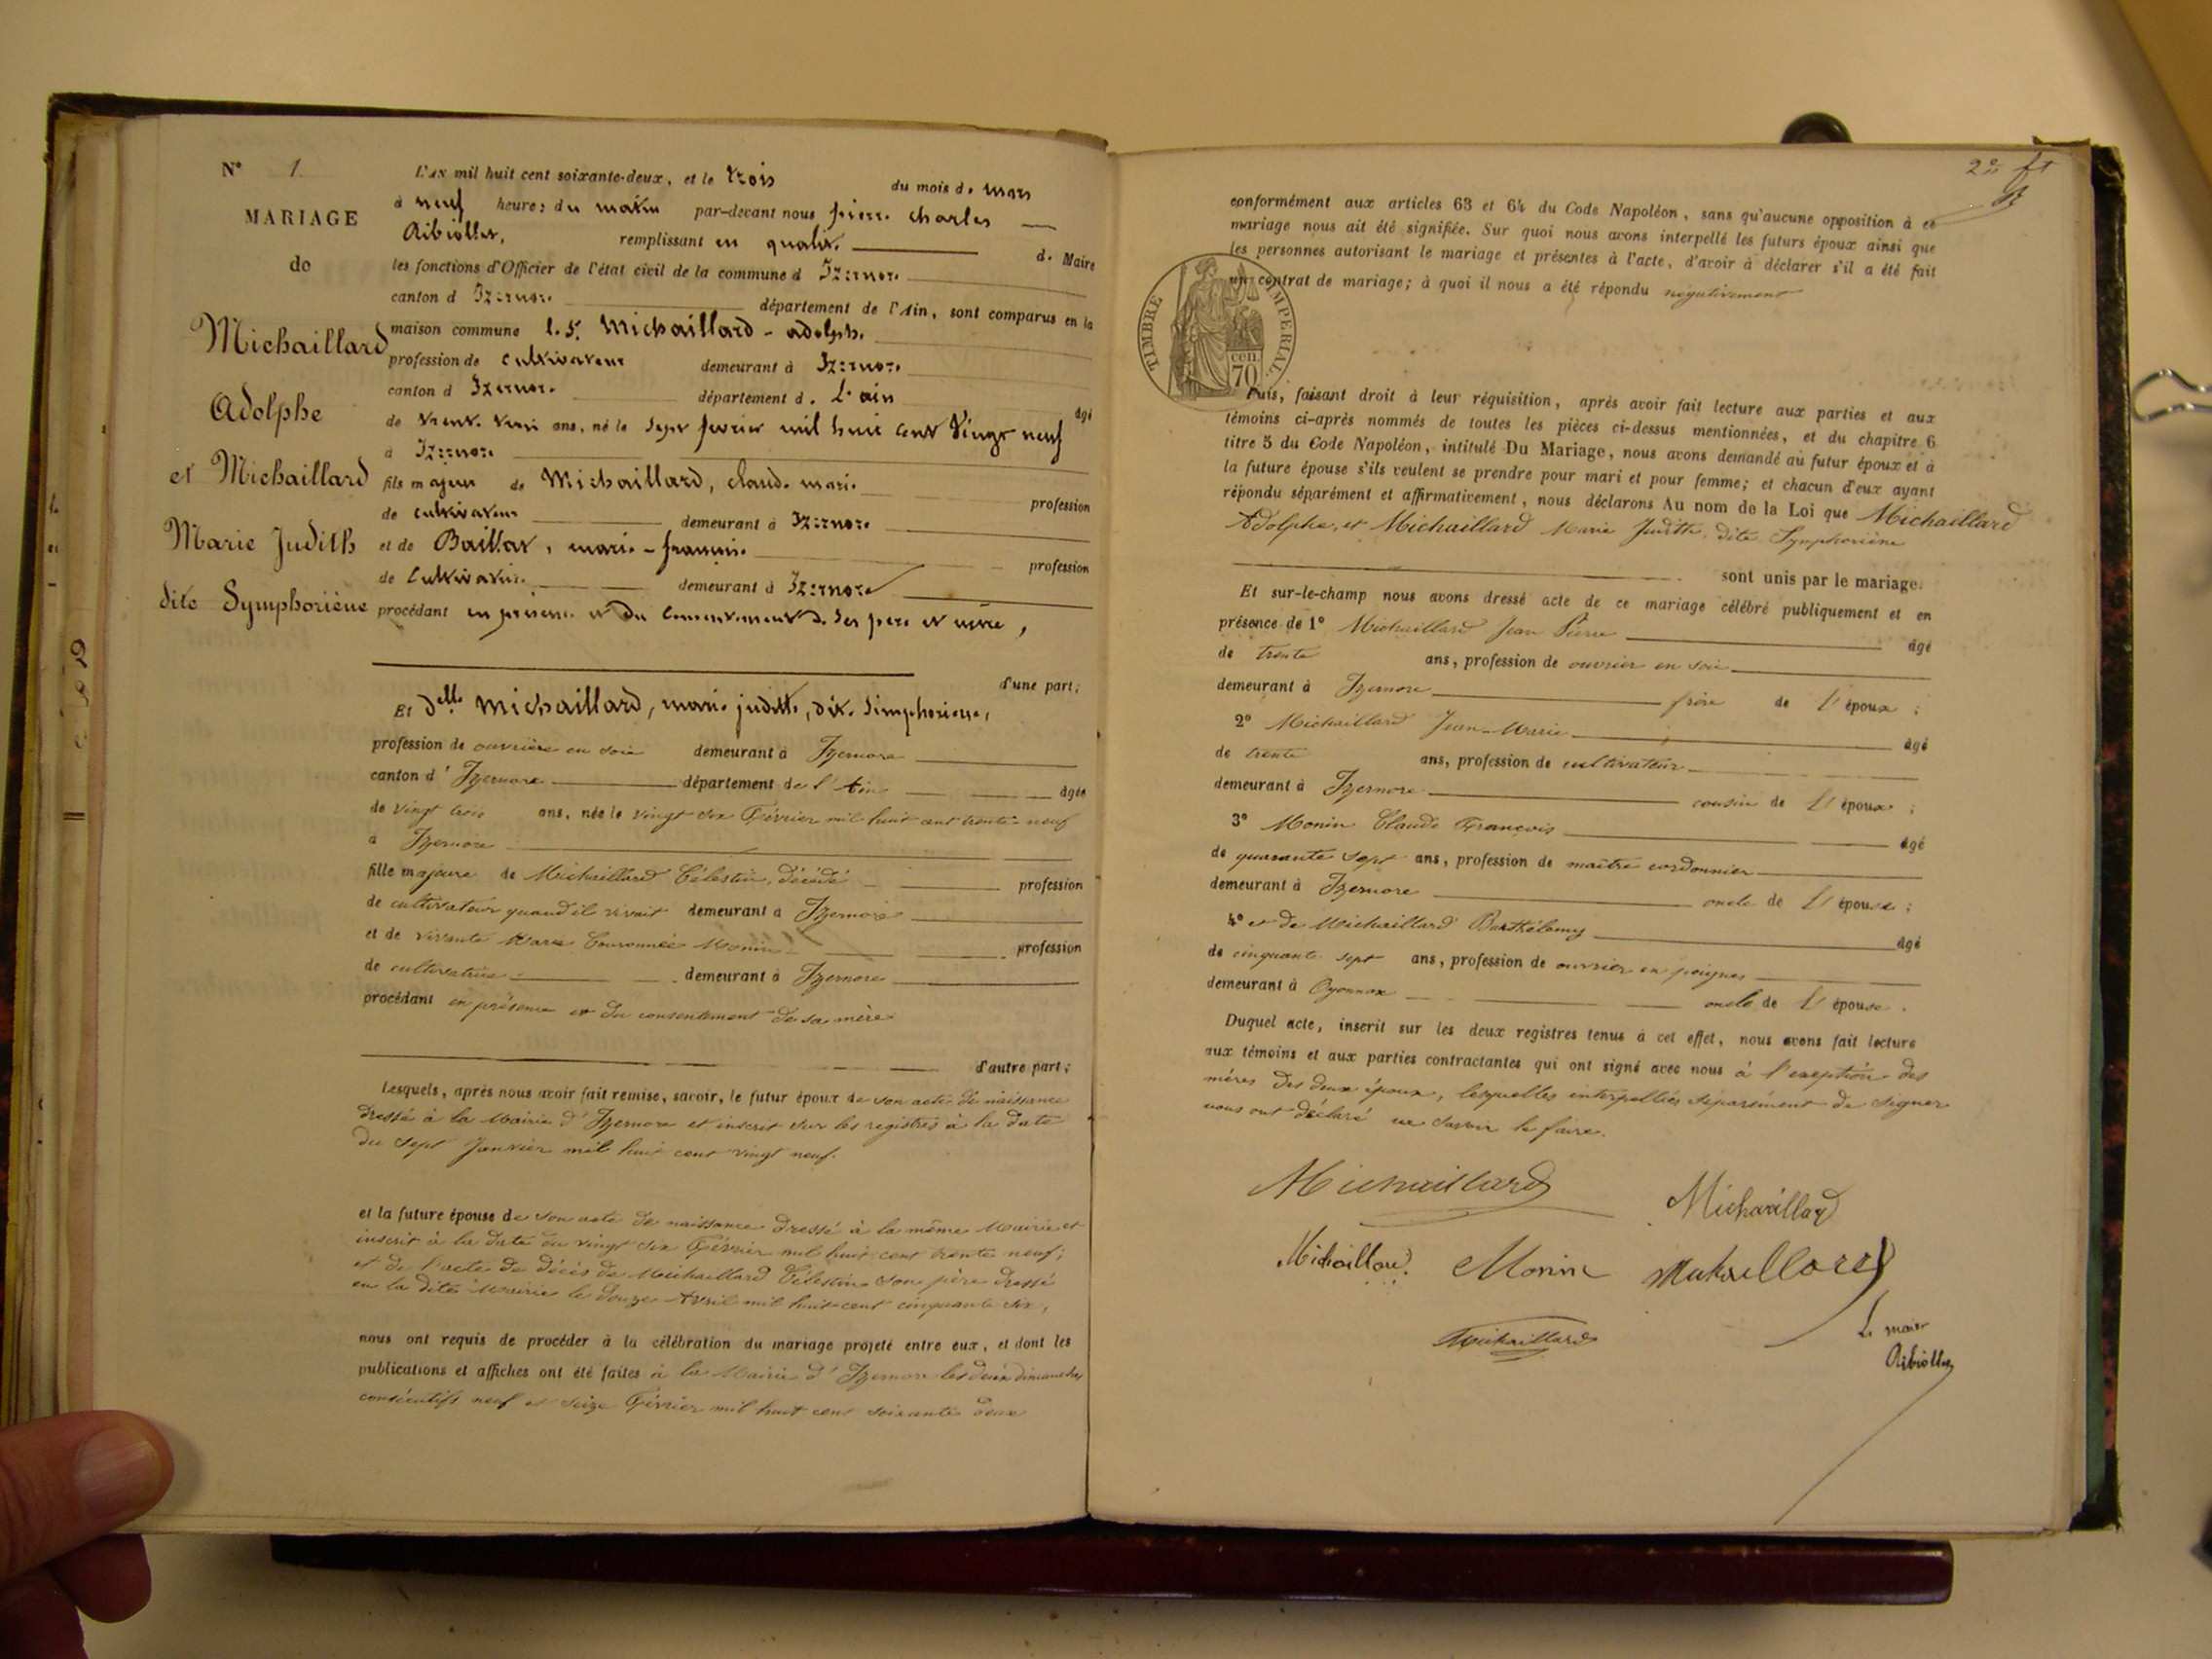 N° 1
MARIAGE
de
Michaillard
Adolphe
et Michaillard
Marie Judith
dite Symphoriène
L'AN mil huit cent soixante-deux, et le trois du mois de mars
à neuf heures du matin par-devant nous pierre charles
Ribiollet, remplissant en qualité de Maire
les fonctions d'Officier de l'état civil de la commune d Izernore
canton d Izernore département de l'Ain, sont comparus en la
maison commune l. Sr Michaillard - adolphe
profession de cultivateur demeurant à Izernore
canton d Izernore département de L'ain âgé
de trente trois ans, né le sept fevrier mil huit cent Vingt neuf
à Izernore
fils majeur de Michaillard, claude marie profession
de cultivateur demeurant à Izernore
et de Baillat, marie - françoise profession
de Cultivatrice demeurant à Izernore
procédant en présence et du consentement de ses pere et mère,
d'une part;
Et delle Michaillard, marie judith, dite Simphoriene,
profession de ouvrière en soie demeurant à Izernore
canton d'Izernore département de l'Ain âgée
de vingt trois ans, née le vingt six Février mil huit cent trente-neuf
à Izernore
fille majeure de Michaillard Célestin, décédé profession
de cultivateur quand il vivait demeurant à Izernore
et de vivante Marie Couronnée Monin profession
de cultivatrice demeurant à Izernore
procédant en présence et du consentement de sa mère
d'autre part;
Lesquels, après nous avoir fait remise, savoir, le futur époux de son acte de naissance
dressé à la Mairie d'Izernore et inscrit sur les registres à la date
du sept Janvier mil huit cent vingt neuf.
et la future épouse de son acte de naissance dressé à la même Mairie et
inscrit à la date du vingt six Février mil huit cent trente neuf;
et de l'acte de décès de Michaillard Célestin son père dressé
en la dite Mairie le douze Avril mil huit-cent cinquante six,
nous ont requis de procéder à la célébration du mariage projeté entre eux, et dont les
publications et affiches ont été faites à la Mairie d'Izernore les deux dimanches
consécutifs neuf et seize Février mil huit cent soixante deux
conformément aux articles 63 et 64 du Code Napoléon, sans qu'aucune opposition à ce
mariage nous ait été signifiée. Sur quoi nous avons interpellé les futurs époux ainsi que
les personnes autorisant le mariage et présentes à l'acte, d'avoir à déclarer s'il a été fait
un contrat de mariage; à quoi il nous a été répondu négativement
TIMBRE IMPERIAL
70 cen.
Puis, faisant droit à leur réquisition, après avoir fait lecture aux parties et aux
témoins ci-après nommés de toutes les pièces ci-dessus mentionnées, et du chapitre 6
titre 5 du Code Napoléon, intitulé Du Mariage, nous avons demandé au futur époux et à
la future épouse s'ils veulent se prendre pour mari et pour femme; et chacun d'eux ayant
répondu séparément et affirmativement, nous déclarons Au nom de la Loi que Michaillard
Adolphe, et Michaillard Marie Judith, dite Symphoriène
sont unis par le mariage.
Et sur-le-champ nous avons dressé acte de ce mariage célébré publiquement et en
présence de 1° Michaillard Jean Pierre âgé
de trente ans, profession de ouvrier en soie
demeurant à Izernore frère de l'époux;
2° Michaillard Jean-Marie âgé
de trente ans, profession de cultivateur
demeurant à Izernore cousin de l'époux;
3° Monin Claude François âgé
de quarante sept ans, profession de maître cordonnier
demeurant à Izernore oncle de l'épouse;
4° et de Michaillard Barthélemy âgé
de cinquante sept ans, profession de ouvrier en peignes
demeurant à Oyonnax oncle de l'épouse.
Duquel acte, inscrit sur les deux registres tenus à cet effet, nous avons fait lecture
aux témoins et aux parties contractantes qui ont signé avec nous à l'exception des
mères des deux époux, lesquelles interpellées séparément de signer
nous ont déclaré ne savoir le faire.
Michaillard
Michaillard
Michaillard
Monin
Michaillard
Michaillard
Le maire
Ribiollet